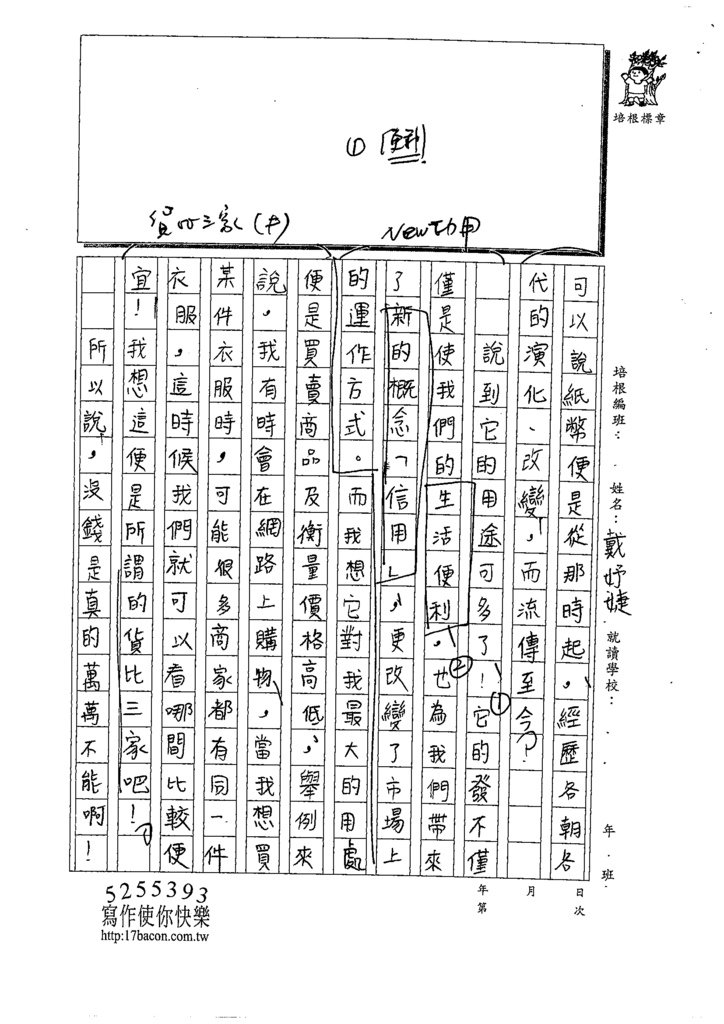 培根標章
① 便利
貨比三家(中)
New功用
培根編班：
姓名：戴妤婕
就讀學校：
年 班
日次
月
年第
可以說紙幣便是從那時起，經歷各朝各
代的演化、改變，而流傳至今？
說到它的用途可多了！它的發不僅
僅是使我們的生活便利，也為我們帶來
了新的概念「信用」，更改變了市場上
的運作方式。而我想它對我最大的用處
便是買賣商品及衡量價格高低，舉例來
說，我有時會在網路上購物，當我想買
某件衣服時，可能很多商家都有同一件
衣服，這時候我們就可以看哪間比較便
宜！我想這便是所謂的貨比三家吧！
所以說，沒錢是真的萬萬不能啊！
① ②
5255393
寫作使你快樂
http:17bacon.com.tw